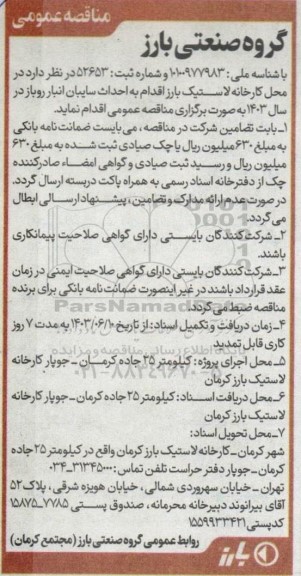 مناقصه عمومی
گروه صنعتی بارز
با شناسه ملی : ۱۰۱۰۰۹۷۷۹۸۳ و شماره ثبت : ۵۲۶۵۳ در نظر دارد در
محل کارخانه لاستیک بارز اقدام به احداث سایبان انبار روباز در
سال ۱۴۰۳ به صورت برگزاری مناقصه عمومی اقدام نماید.
۱ـ بابت تضامین شرکت در مناقصه ، می بایست ضمانت نامه بانکی
به مبلغ ۶۳۰ میلیون ریال یا چک صیادی ثبت شده به مبلغ ۶۳۰
میلیون ریال و رسید ثبت صیادی و گواهی امضاء صادرکننده
چک از دفترخانه اسناد رسمی به همراه پاکت دربسته ارسال گردد.
در صورت عدم ارائه مدارک و تضامین ، پیشنهاد ارسالی ابطال
می گردد.
۲ـ شرکت کنندگان بایستی دارای گواهی صلاحیت پیمانکاری
باشند.
۳ـ شرکت کنندگان بایستی دارای گواهی صلاحیت ایمنی در زمان
عقد قرارداد باشند در غیر اینصورت ضمانت نامه بانکی برای برنده
مناقصه ضبط می گردد.
۴ـ زمان دریافت و تکمیل اسناد : از تاریخ ۱۴۰۳/۰۶/۱۰ به مدت ۷ روز
کاری قابل تمدید
۵ـ محل اجرای پروژه : کیلومتر ۲۵ جاده کرمان ـ جوپار کارخانه
لاستیک بارز کرمان
۶ـ محل دریافت اسناد : کیلومتر ۲۵ جاده کرمان ـ جوپار کارخانه
لاستیک بارز کرمان
۷ـ محل تحویل اسناد :
شهر کرمان ـ کارخانه لاستیک بارز کرمان واقع در کیلومتر ۲۵ جاده
کرمان ـ جوپار دفتر حراست تلفن تماس : ۳۱۳۴۵۰۰۰-۰۳۴
تهران ـ خیابان سهروردی شمالی ، خیابان هویزه شرقی ، پلاک ۵۲
آقای بیرانوند دبیرخانه محرمانه ، صندوق پستی ۷۷۸۵-۱۵۸۷۵
کدپستی ۱۵۵۹۹۳۳۴۲۱
روابط عمومی گروه صنعتی بارز (مجتمع کرمان)
بارز
ParsNamadData
۰۲۱-۸۸۳۴۹۶۷۰